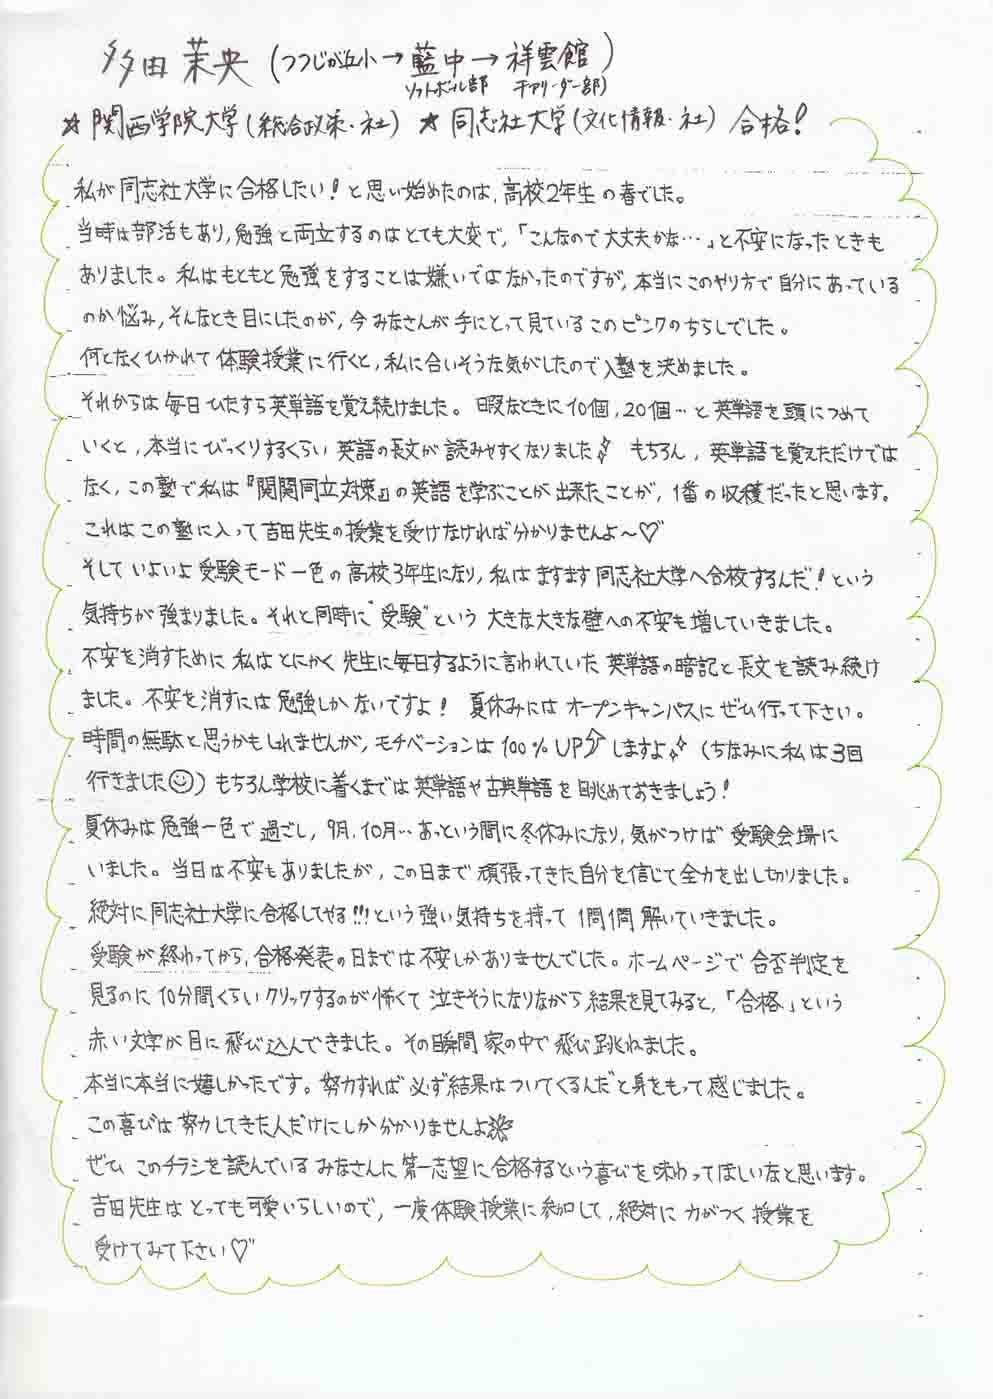 多田 茉央 (つつじが丘小→藍中→祥雲館)
ソフトボール部 チアリーダー部)
☆関西学院大学(総合政策・社) ☆同志社大学(文化情報・社) 合格!
私が同志社大学に合格したい!と思い始めたのは、高校2年生の春でした。
当時は部活もあり、勉強と両立するのはとても大変で、「こんなので大丈夫かな…」と不安になったときも
ありました。私はもともと勉強をすることは嫌いではなかったのですが、本当にこのやり方で自分にあっている
のか悩み、そんなとき目にしたのが、今みなさんが手にとって見ているこのピンクのちらしでした。
何となくひかれて体験授業に行くと、私に合いそうな気がしたので入塾を決めました。
それからは毎日ひたすら英単語を覚え続けました。暇なときに10個、20個…と英単語を頭につめて
いくと、本当にびっくりするくらい英語の長文が読みやすくなりました✧ もちろん、英単語を覚えただけでは
なく、この塾で私は『関関同立対策』の英語を学ぶことが出来たことが、1番の収穫だったと思います。
これはこの塾に入って吉田先生の授業を受けなければ分かりませんよ~♡
そしていよいよ受験モード一色の高校3年生になり、私はますます同志社大学へ合格するんだ!という
気持ちが強まりました。それと同時に"受験"という大きな大きな壁への不安も増していきました。
不安を消すために私はとにかく先生に毎日するように言われていた英単語の暗記と長文を読み続け
ました。不安を消すには勉強しかないですよ! 夏休みにはオープンキャンパスにぜひ行って下さい。
時間の無駄と思うかもしれませんが、モチベーションは100%UP⤴しますよ✧ (ちなみに私は3回
行きました☺)もちろん学校に着くまでは英単語や古典単語を眺めておきましょう!
夏休みは勉強一色で過ごし、9月、10月…あっという間に冬休みになり、気がつけば受験会場に
いました。当日は不安もありましたが、この日まで頑張ってきた自分を信じて全力を出し切りました。
絶対に同志社大学に合格してやる!!!という強い気持ちを持って1問1問解いていきました。
受験が終わってから、合格発表の日までは不安しかありませんでした。ホームページで合否判定を
見るのに10分間くらいクリックするのが怖くて泣きそうになりながら結果を見てみると、「合格」という
赤い文字が目に飛び込んできました。その瞬間家の中で飛び跳ねました。
本当に本当に嬉しかったです。努力すれば必ず結果はついてくるんだと身をもって感じました。
この喜びは努力してきた人だけにしか分かりませんよ
ぜひこのチラシを読んでいるみなさんに第一志望に合格するという喜びを味わってほしいなと思います。
吉田先生はとっても可愛いらしいので、一度体験授業に参加して、絶対に力がつく授業を
受けてみて下さい♡